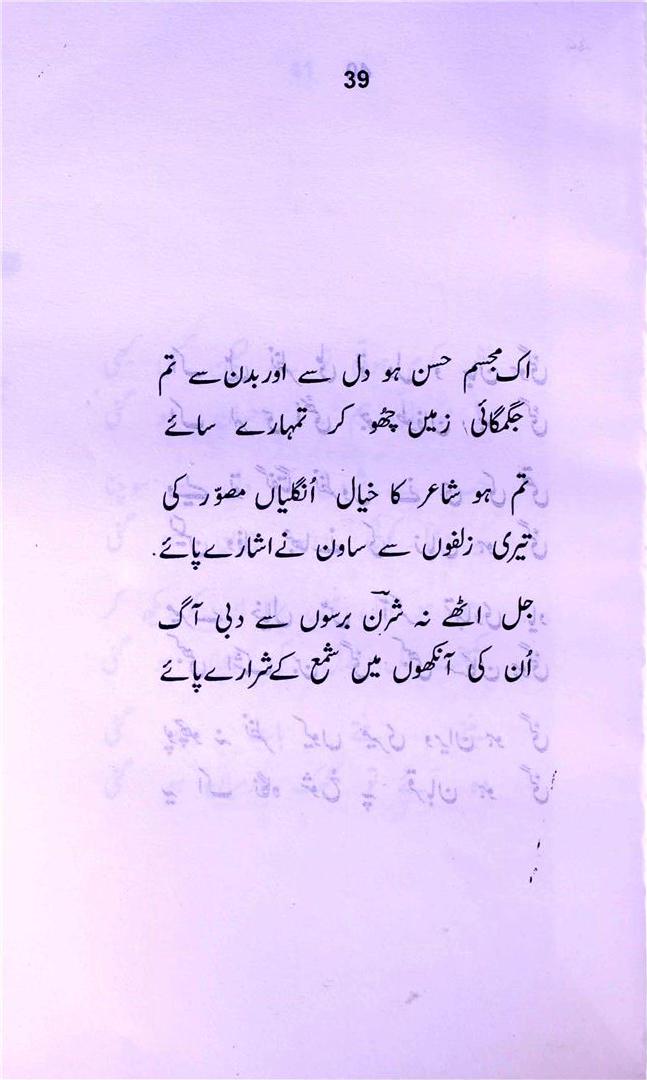 39
اک مجسم حسن ہو دل سے اور بدن سے تم
جگمگائی زمیں چھو کر تمہارے سائے
تم ہو شاعر کا خیال اُنگلیاں مصوّر کی
تیری زلفوں سے ساون نے اشارے پائے
جل اٹھے نہ شرنؔ برسوں سے دبی آگ
اُن کی آنکھوں میں شمع کے شرارے پائے